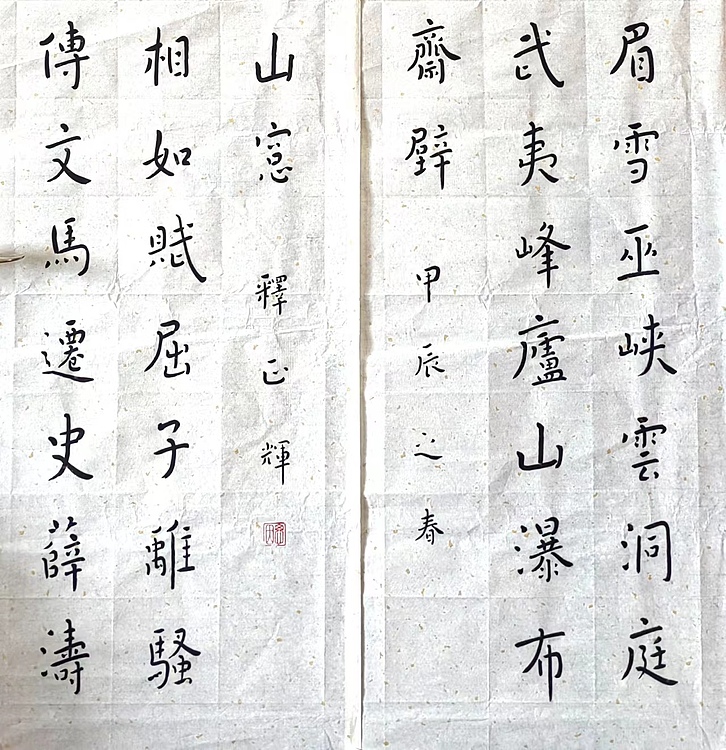 眉雪巫峽雲洞庭
武夷峰廬山瀑布
齋壁
甲辰之春
傳文馬遷史薛濤
相如賦屈子離騷
山窓
釋正輝